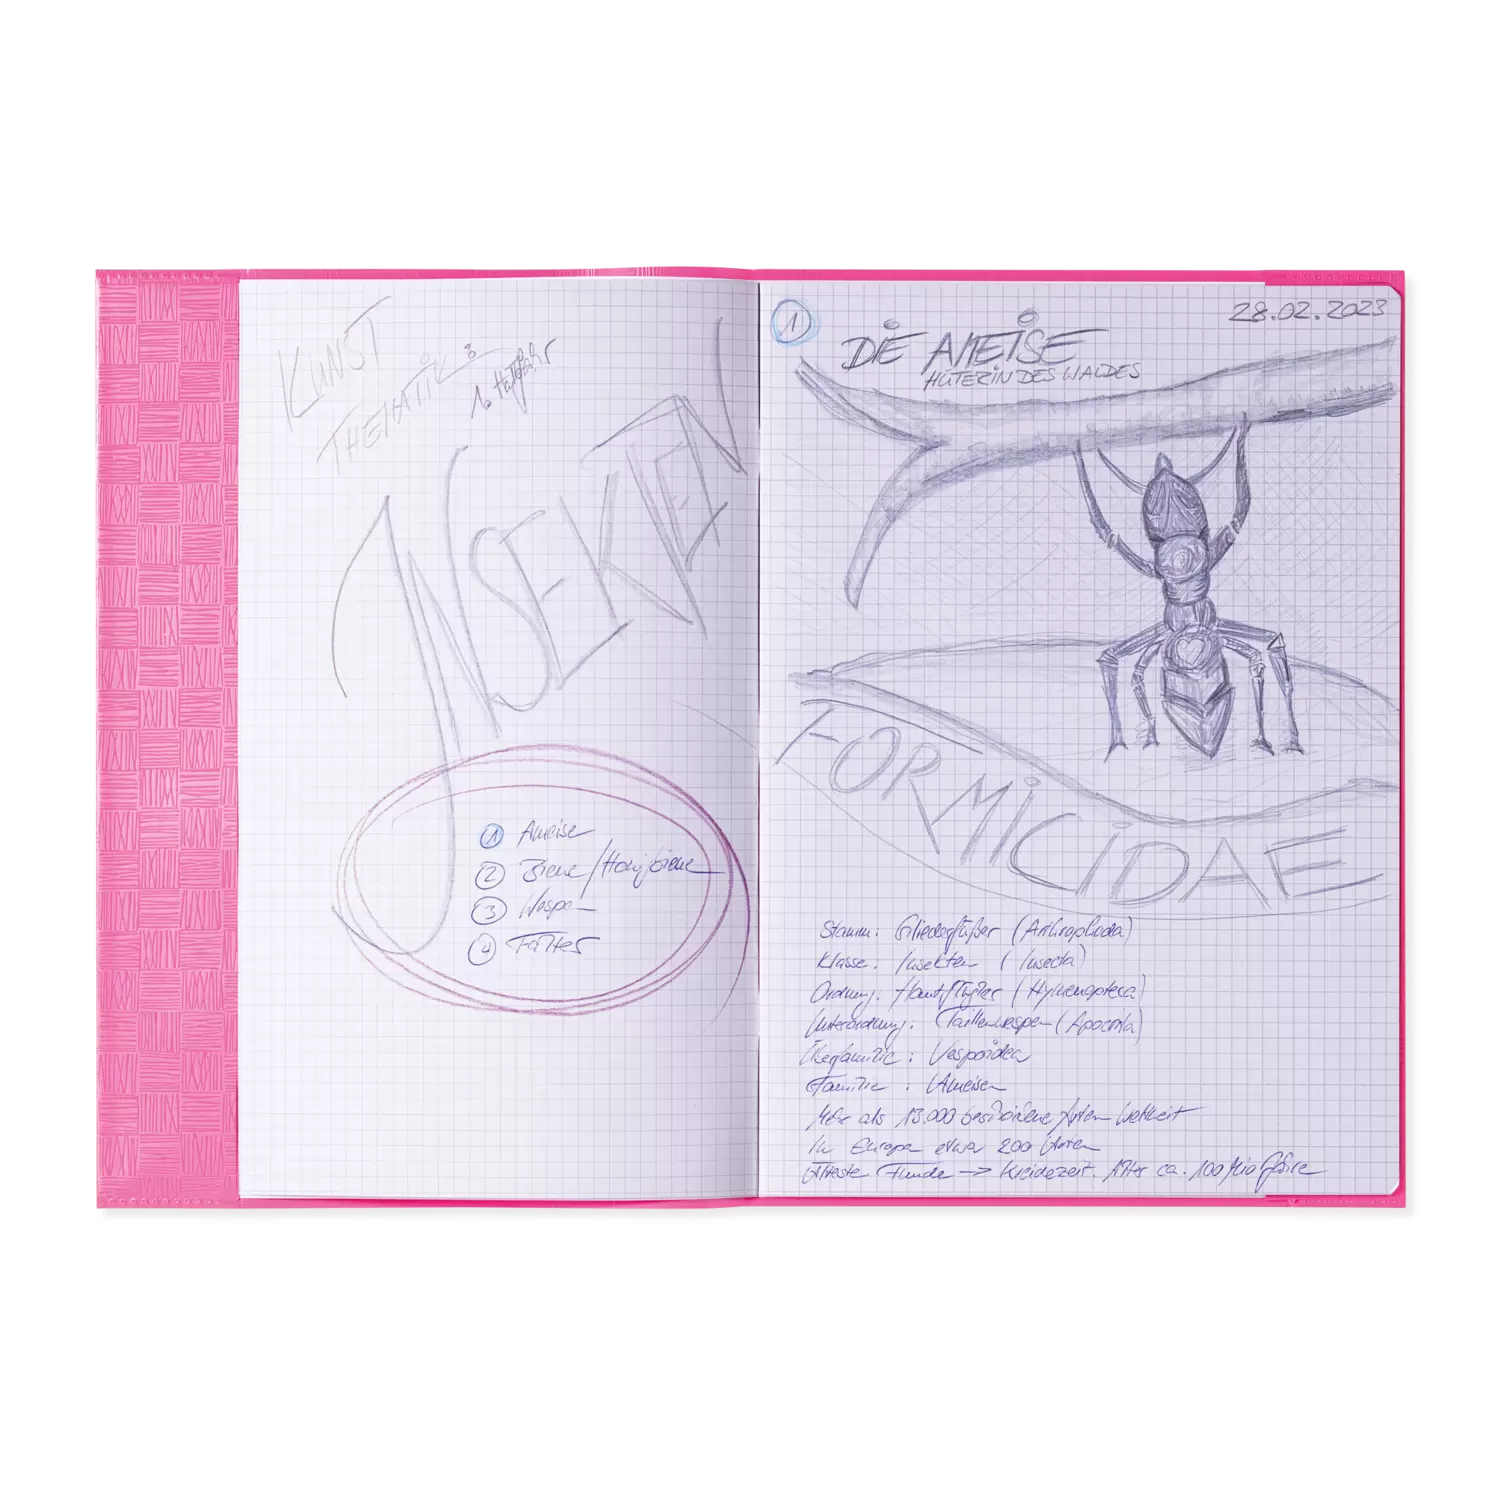 KUNST
THEMATIK:
1. Halbjahr
INSEKTEN
1 Ameise
2 Biene/Honigbiene
3 Wespen
4 Falter
1
28.02.2023
DIE AMEISE
HÜTERIN DES WALDES
FORMICIDAE
Stamm: Gliederfüßer (Arthrophoda)
Klasse: Insekten (Insecta)
Ordnung: Hautflügler (Hymenoptera)
Unterordnung: Taillenwespen (Apocrita)
Überfamilie: Vespoidea
Familie: Ameisen
Mehr als 13.000 beschriebene Arten Weltweit
In Europa etwa 200 Arten
Älteste Funde → Kreidezeit. Alter ca. 100 Mio Jahre